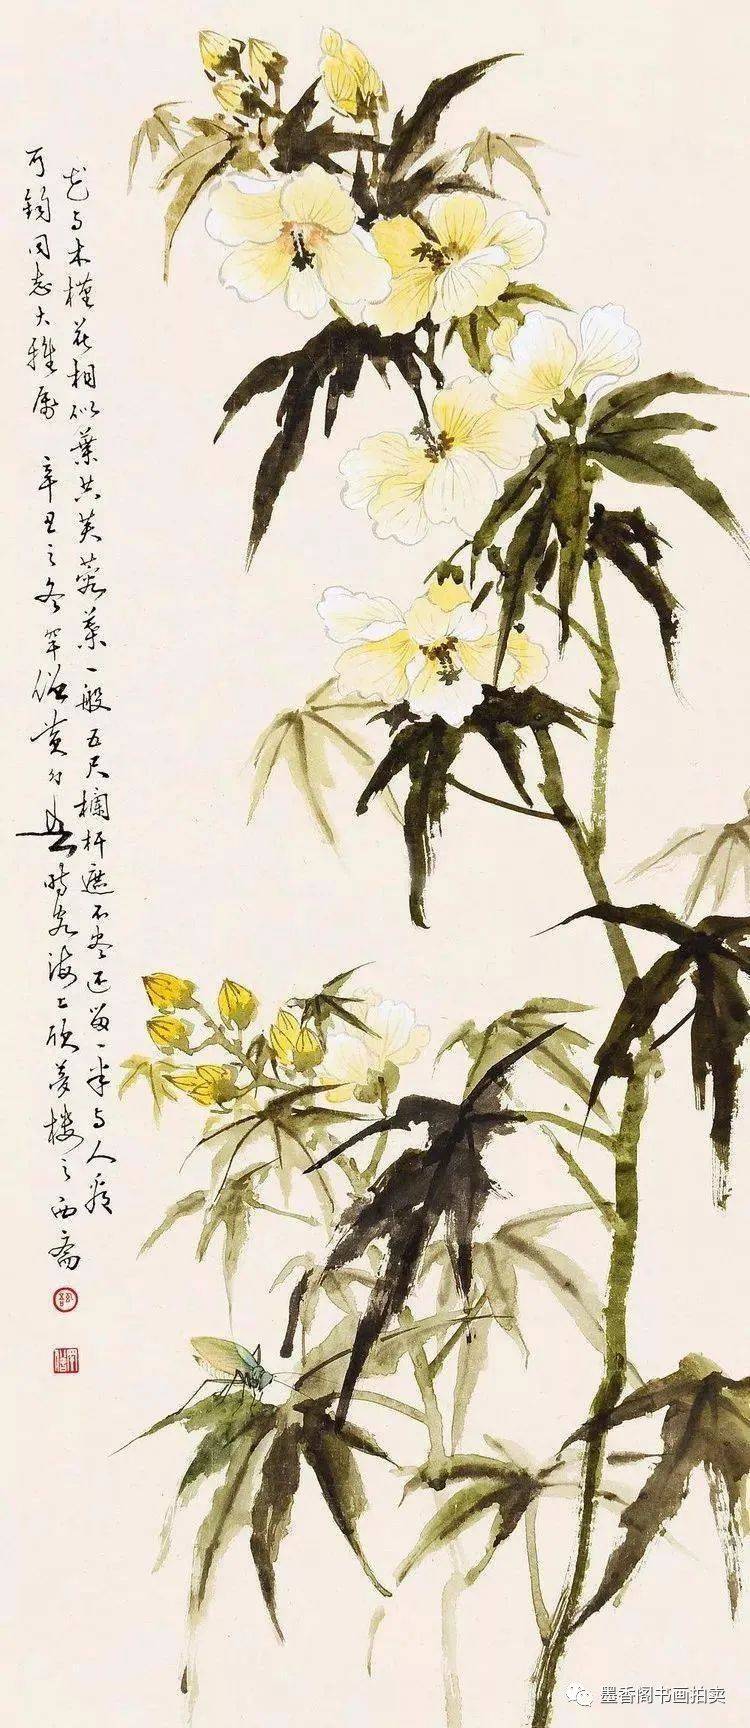 花与木槿花相似叶共芙蓉葉一般五尺欄杆遮不尽还留一半与人看
可鈞同志大雅属 辛丑之冬罕僧黄幻吾時客海上欣夢楼之西斋
墨香阁书画拍卖